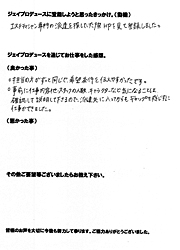 ジェイプロデュースに登録しようと思ったきっかけ。(動機)
エステティシャン専門の派遣を探した際HPを見て登録しました。
ジェイプロデュースを通じてお仕事をした感想。
(良かった事)
・担当の方がずっと同じで、希望条件を伝えやすかったです。
・事前に仕事内容やスタッフの人数、キャラクターなど気になることは
確認して説明して下さるので、派遣先に入ってからもギャップを感じずに
仕事ができました。
(悪かった事)
その他ご要望等ございましたらお教え下さい。
皆様のお声を大切に今後も努力して参ります。ご協力ありがとうございました。